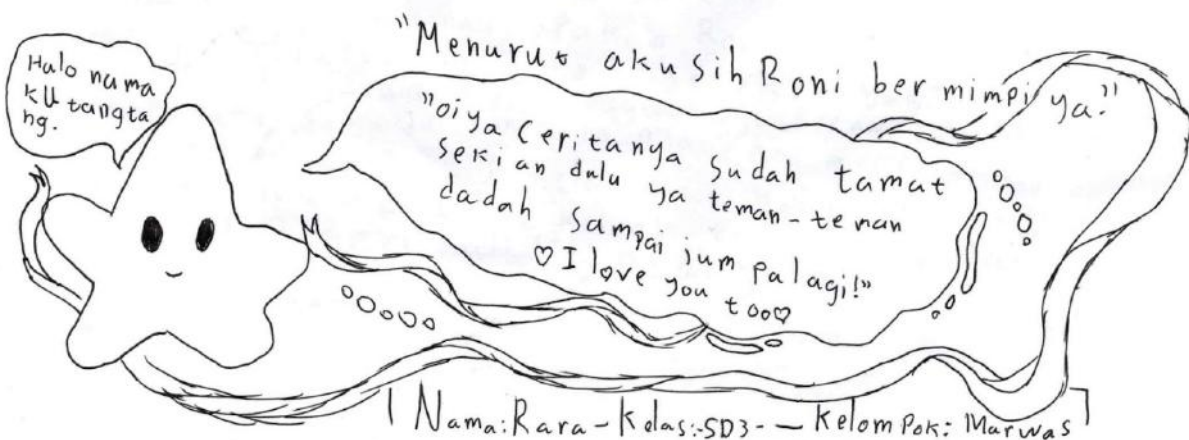 Halo nama
ku tangta
ng.
"Menurut aku sih Roni bermimpi ya."
"oiya ceritanya sudah tamat
sekian dulu ya teman-teman
dadah sampai jumpa lagi!"
♡ I love you too♡
Nama: Rara - Kelas: SD3 - — Kelompok: Marwas